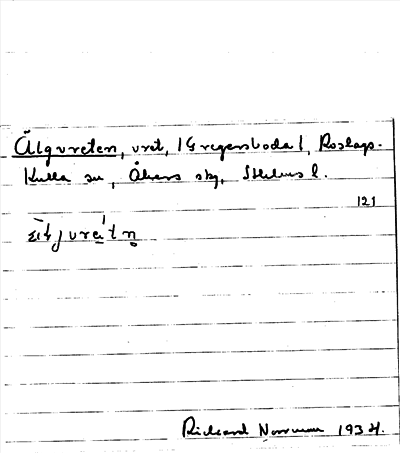 Älgvreten, vret, /Gregersboda/, Roslags-
Kulla sn, Åkers skg, Sthlms l.
121
Richard Norrman 1934.